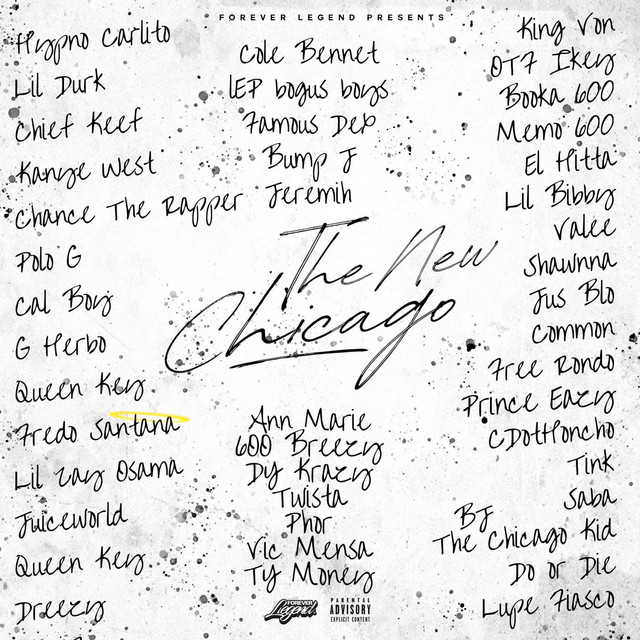 FOREVER LEGEND PRESENTS
Hypno Carlito
Lil Durk
Chief Keef
Kanye West
Chance The Rapper
Polo G
Cal Boy
G Herbo
Queen Key
Fredo Santana
Lil Zay Osama
Juiceworld
Queen Key
Dreezy
Cole Bennet
lEP bogus boys
Famous Dex
Bump J
Jeremih
The New
Chicago
Ann Marie
600 Breezy
Dly Krazy
Twista
Phor
Vic Mensa
TY Money
FOREVER
Legend
PARENTAL
ADVISORY
EXPLICIT CONTENT
King Von
OTF Ikey
Booka 600
Memo 600
El Hitta
Lil Bibby
Valee
Shawnna
Jus Blo
Common
Free Rondo
Prince Eazy
CDotHoncho
Tink
Saba
BJ
The Chicago Kid
Do or Die
Lupe Fiasco